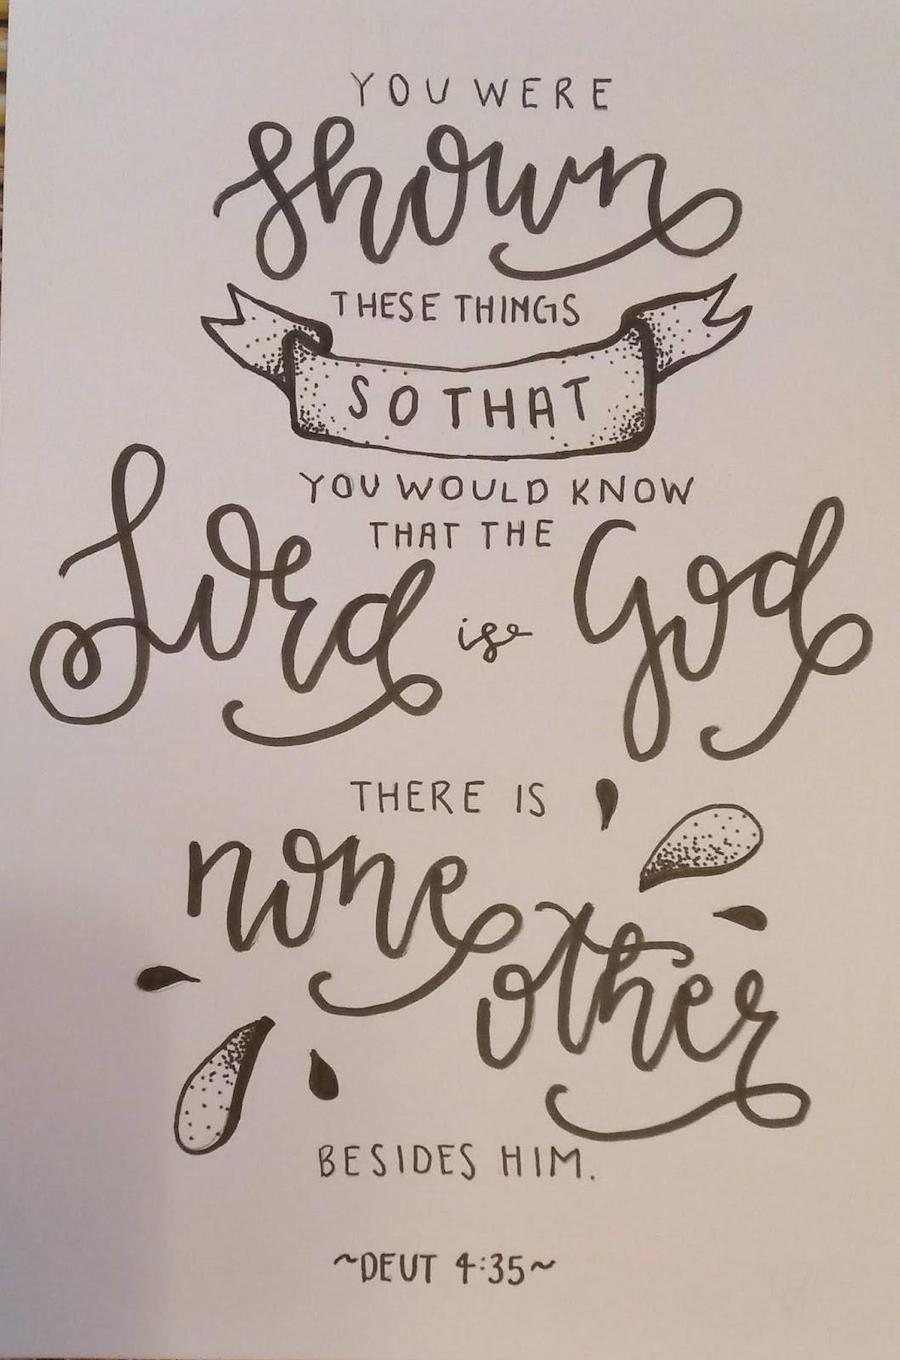 YOU WERE
shown
THESE THINGS
SO THAT
YOU WOULD KNOW
THAT THE
Lord is God
THERE IS
none
other
BESIDES HIM.
~DEUT 4:35~